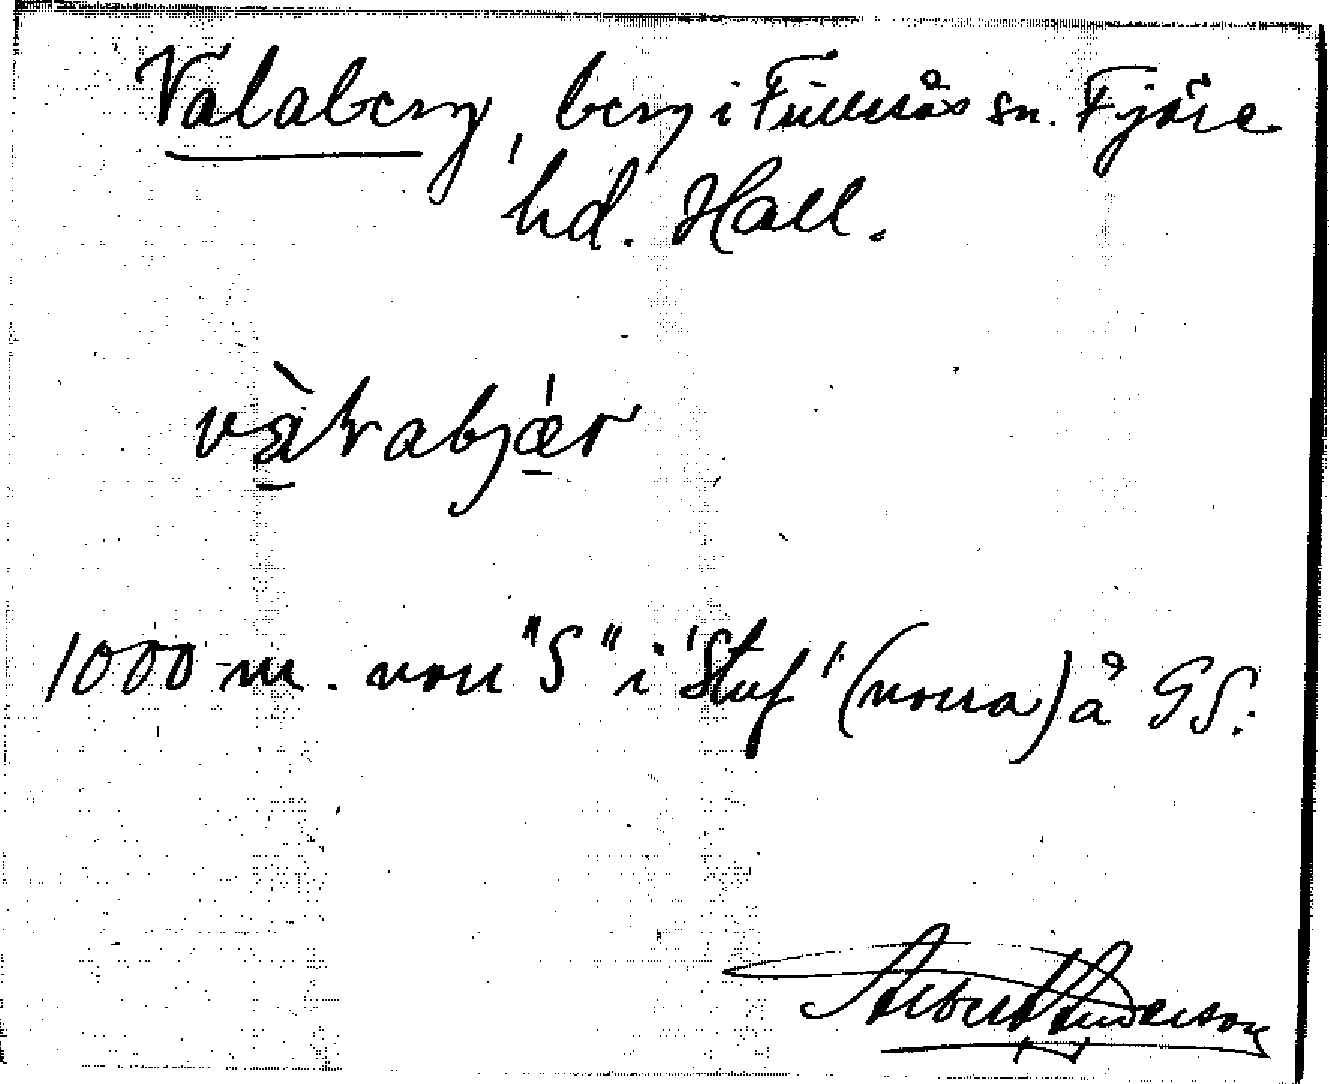 Valaberg, berg i Fillerås sn. Fjäre
hd. Hall.
1000 m. norr "S" i "Stuf" (norra) å GS.
Albert Anderson